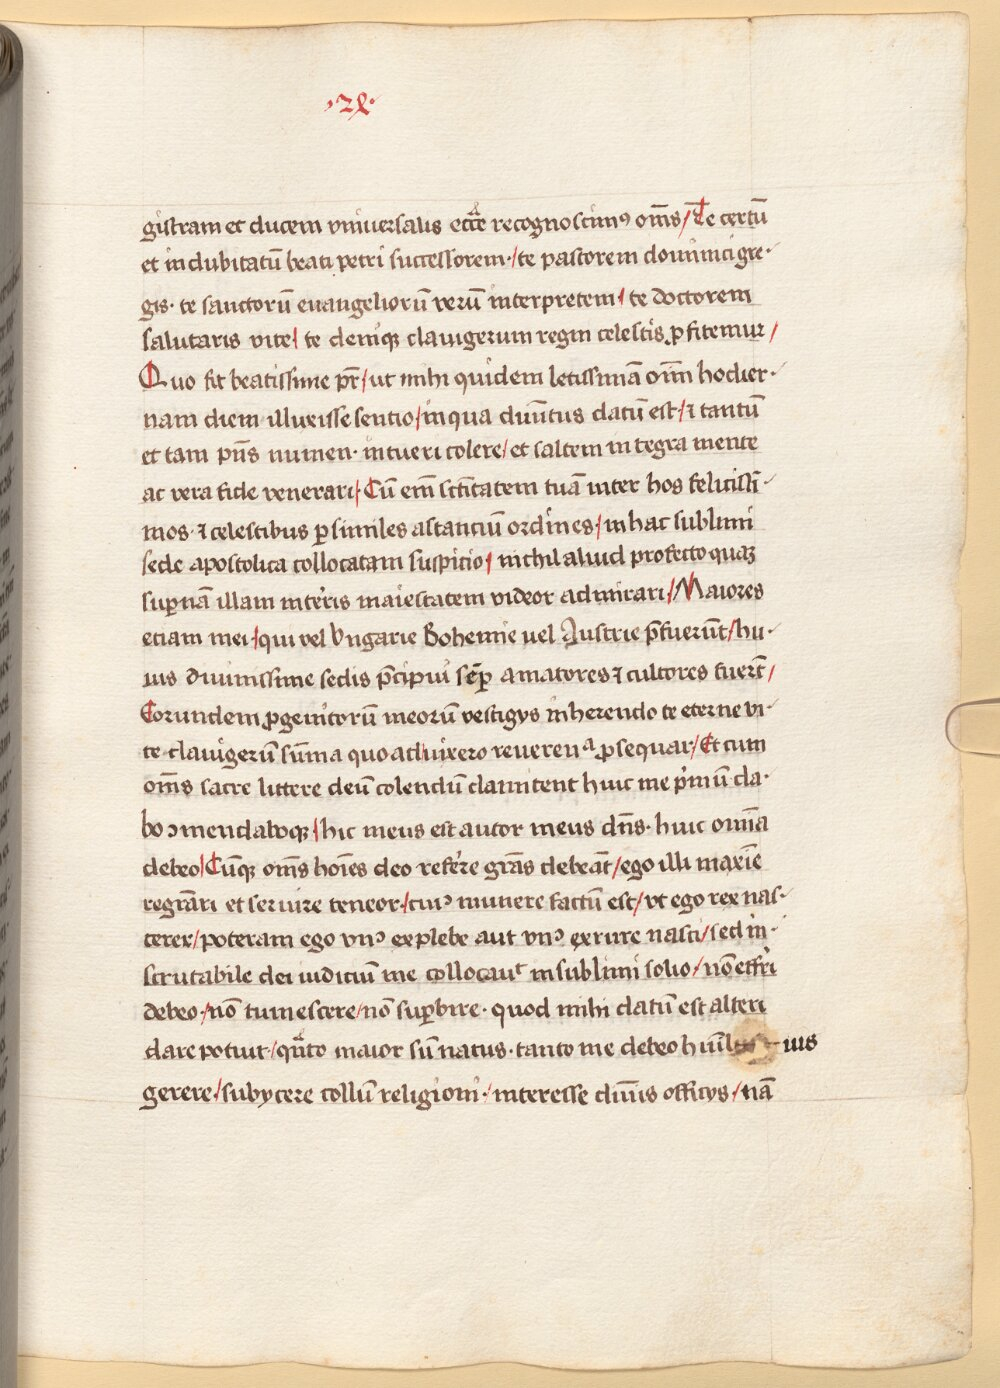 ·2ꝭ·
gistram et ducem vniuersalis eccͣe recognoscimꝰ om̄s/ Te certū
et indubitatū beati petri successorem·/ te pastorem dominici gre·
gis· te sanctorū euangeliorū verū interpretem/ te doctorem
salutaris vite/ te deniqꝫ clauigerum regni celestis ꝓfitemur/
Quo fit beatissime pr̄/ ut mihi quidem letissimā om̄m hodier·
nam diem illuxisse sentio/ in qua diuītus datū est/ ⁊ tantū
et tam pn̄s numen· intueri colere/ et saltem integra mente
ac vera fide venerari/ Cū em̄ sctītatem tuā inter hos felicissi·
mos· ⁊ celestibus ꝑsimiles astanciū ordines/ in hac sublimi
sede apostolica collocatam suspicio/ nichil aliud profecto quaꝫ
suꝑnā illam interis maiestatem videor admirari/ Maiores
etiam mei/ qui vel Vngarie Bohemie uel Austrie p̄fuerūt/ hu·
ius diuinissime sedis p̄cipui seꝑ amatores ⁊ cultores fuert̄/
Eorundem ꝓgenitorū meorū vestigys inherendo te eterne vi·
te clauigerū sūma quoad uixero reuerenͣ ꝓsequar/ Et cum
om̄s sacre littere deū colendū clamitent huic me pͥmū da·
bo ↄmendaboqꝫ/ hic meus est autor meus dn̄s· huic om̄ia
debeo/ Cūqꝫ om̄s hoīes deo referre grās debeāt/ ego illi maxīe
regrāri et seruire teneor·/ cuiꝰ munere factū est/ vt ego rex nas·
cerer/ poteram ego vnꝰ ex plebe aut vnꝰ ex rure nasci/ sed in·
scrutabile dei iudiciū me collocauͭ in sublimi solio/ nō efferri
debeo·/ nō tumescere/ nō suꝑbire· quod mihi datū est alteri
dare potuit·/ quͣnto maior sū natus· tanto me debeo humil ius
gerere/ subycere collū religioni·/ interesse diuīs officys/ nā